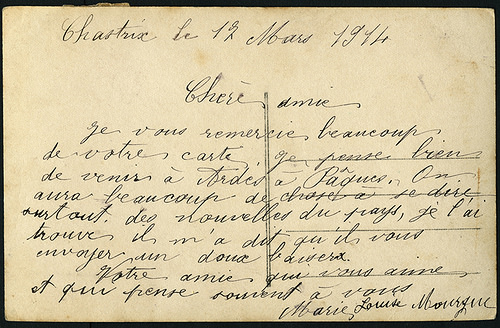 Chastrix le 12 Mars 1914
Cherè amie
Je vous remercie beaucoup
de votre carte, je pense bien
de venir à Ardes à Pâques. On
aura beaucoup de choses à se dire
surtout. des nouvelles du pays, je l'ai
trouve il m'a dit qu'il vous
envoyer un doux baiser.
Votre amie qui vous aime
et qui pense souvent à vous
Marie Louise Mourgue